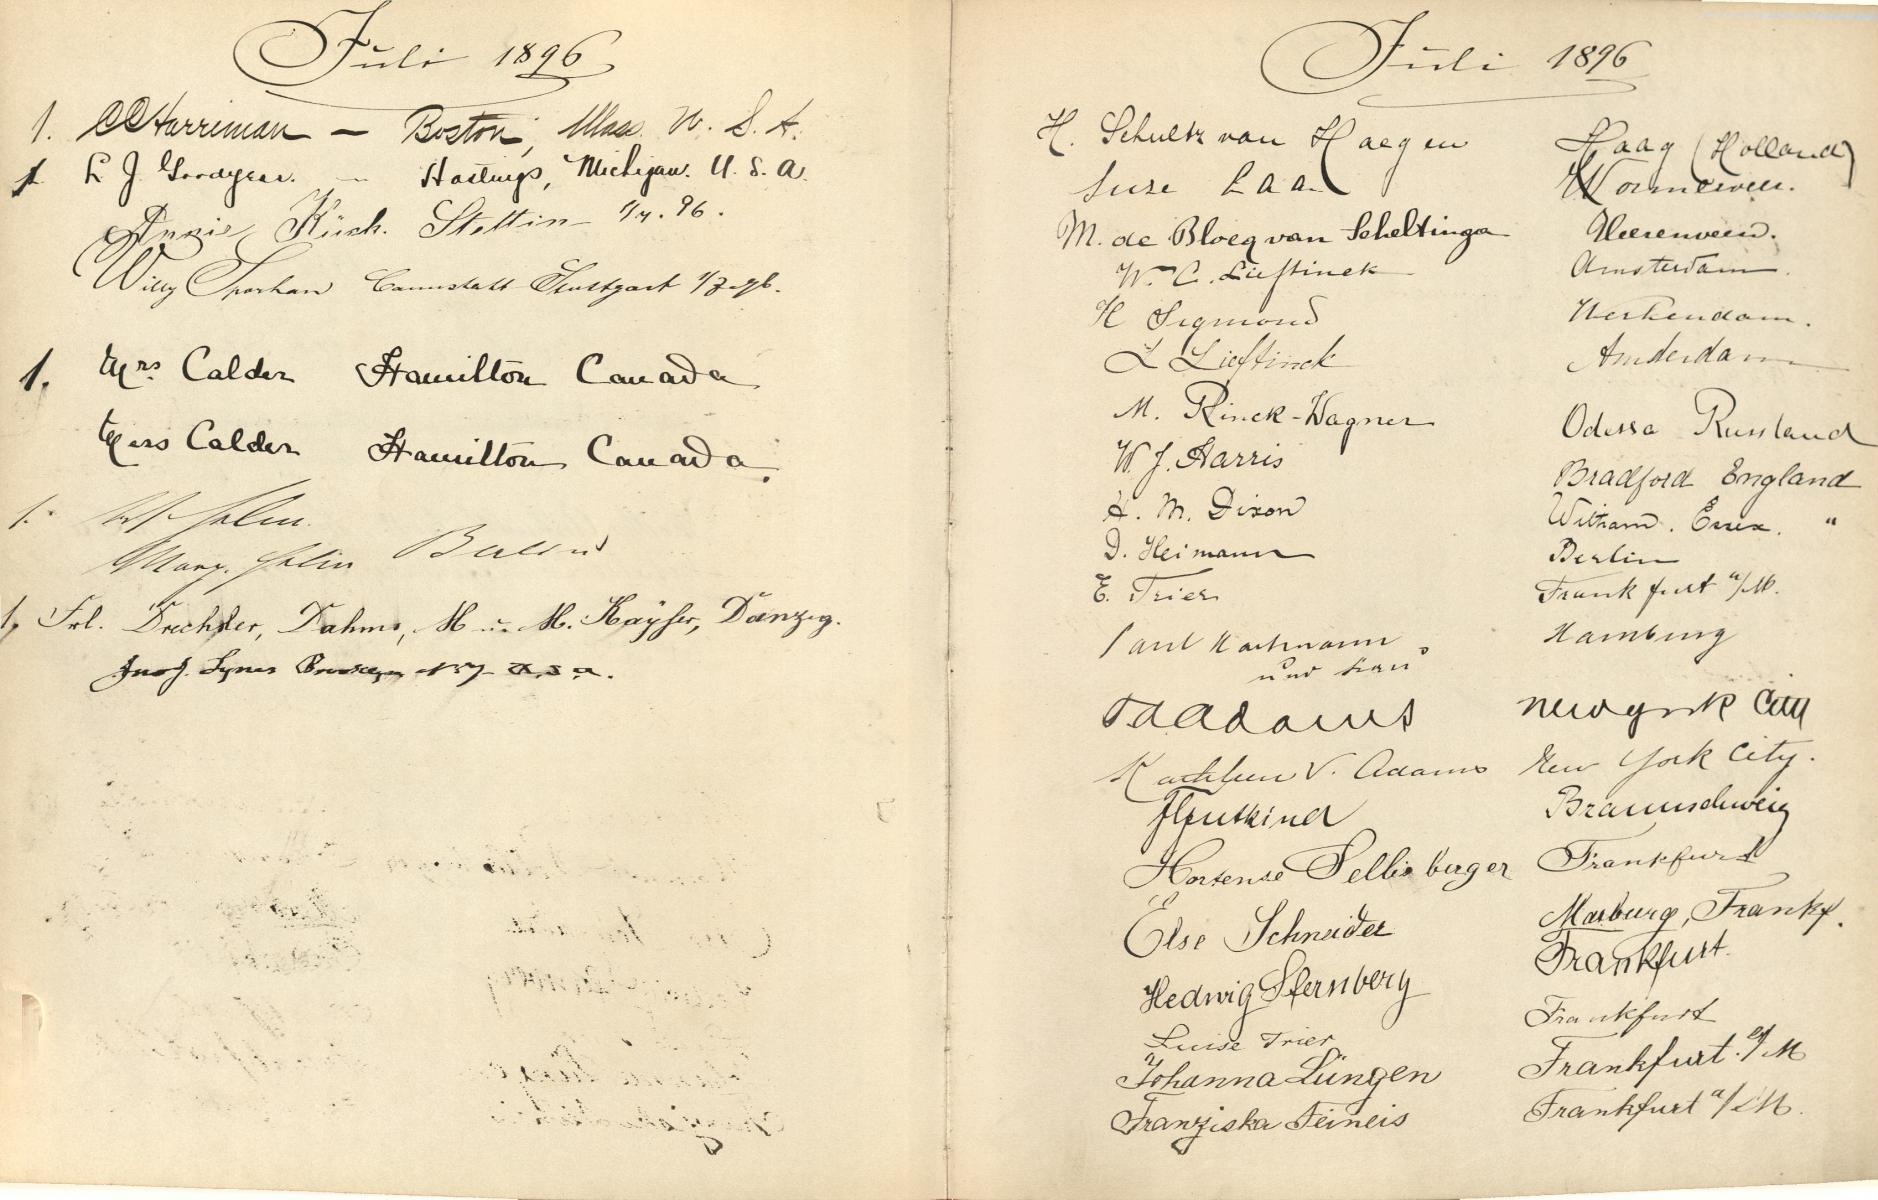 Juli 1896
1. CC Harriman — Boston, Mass. U. S. A.
1. L J. Goodyear. — Hastings, Michigan. U. S. A.
Kürch. Stettin 1/7. 96.
Willy Cannstatt Stuttgart 1/7. 96.
1. Mrs. Calder Hamilton Canada
Miss Calder Hamilton Canada.
1.
Berlin
1, Frl. Drechsler, Dahms, M. u. M. Kayser, Danzig.
Jno J. Lynes Brooklyn NY U.S.A.
Juli 1896
H. Schultz van Haegen Haag (Holland)
Suze Laan Wormerveer.
M. de Blocq van Scheltinga Heerenveen.
Wm. C. Lieftinck Amsterdam.
H Sigmond Werkendam.
L Lieftinck Amsterdam
M. Rinck-Wagner Odessa Russland
W. J. Harris Bradford England
H. M. Dixon Witham. Essex. "
D. Heimann Berlin
E. Trier Frankfurt a/M.
Paul Hartmann Hamburg
und Frau
T A Adams New York City
Kathleen V. Adams New York City.
Gutkind Braunschweig
Hortense Sellisberger Frankfurt
Else Schneider Marburg, Frankf.
Hedwig Sternberg Frankfurt.
Luise Trier Frankfurt
Johanna Lüngen Frankfurt a/M
Franziska Feineis Frankfurt a/M.